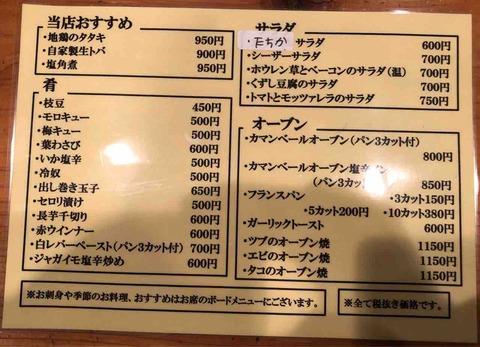 当店おすすめ
・地鶏のタタキ 950円
・自家製生トバ 900円
・塩角煮 950円
肴
・枝豆 450円
・モロキュー 500円
・梅キュー 500円
・葉わさび 600円
・いか塩辛 500円
・冷奴 500円
・出し巻き玉子 650円
・セロリ漬け 500円
・長芋千切り 600円
・赤ウインナー 600円
・白レバーペースト(パン3カット付) 700円
・ジャガイモ塩辛炒め 600円
サラダ
・たちかサラダ 600円
・シーザーサラダ 700円
・ホウレン草とベーコンのサラダ(温) 700円
・くずし豆腐のサラダ 700円
・トマトとモッツァレラのサラダ 750円
オーブン
・カマンベールオーブン(パン3カット付)
800円
・カマンベールオーブン塩辛イン
(パン3カット) 850円
・フランスパン ・3カット150円
・5カット200円 ・10カット380円
・ガーリックトースト 600円
・ツブのオーブン焼 1150円
・エビのオーブン焼 1150円
・タコのオーブン焼 1150円
※お刺身や季節のお料理、おすすめはお席のボードメニューにございます。
※全て税抜き価格です。